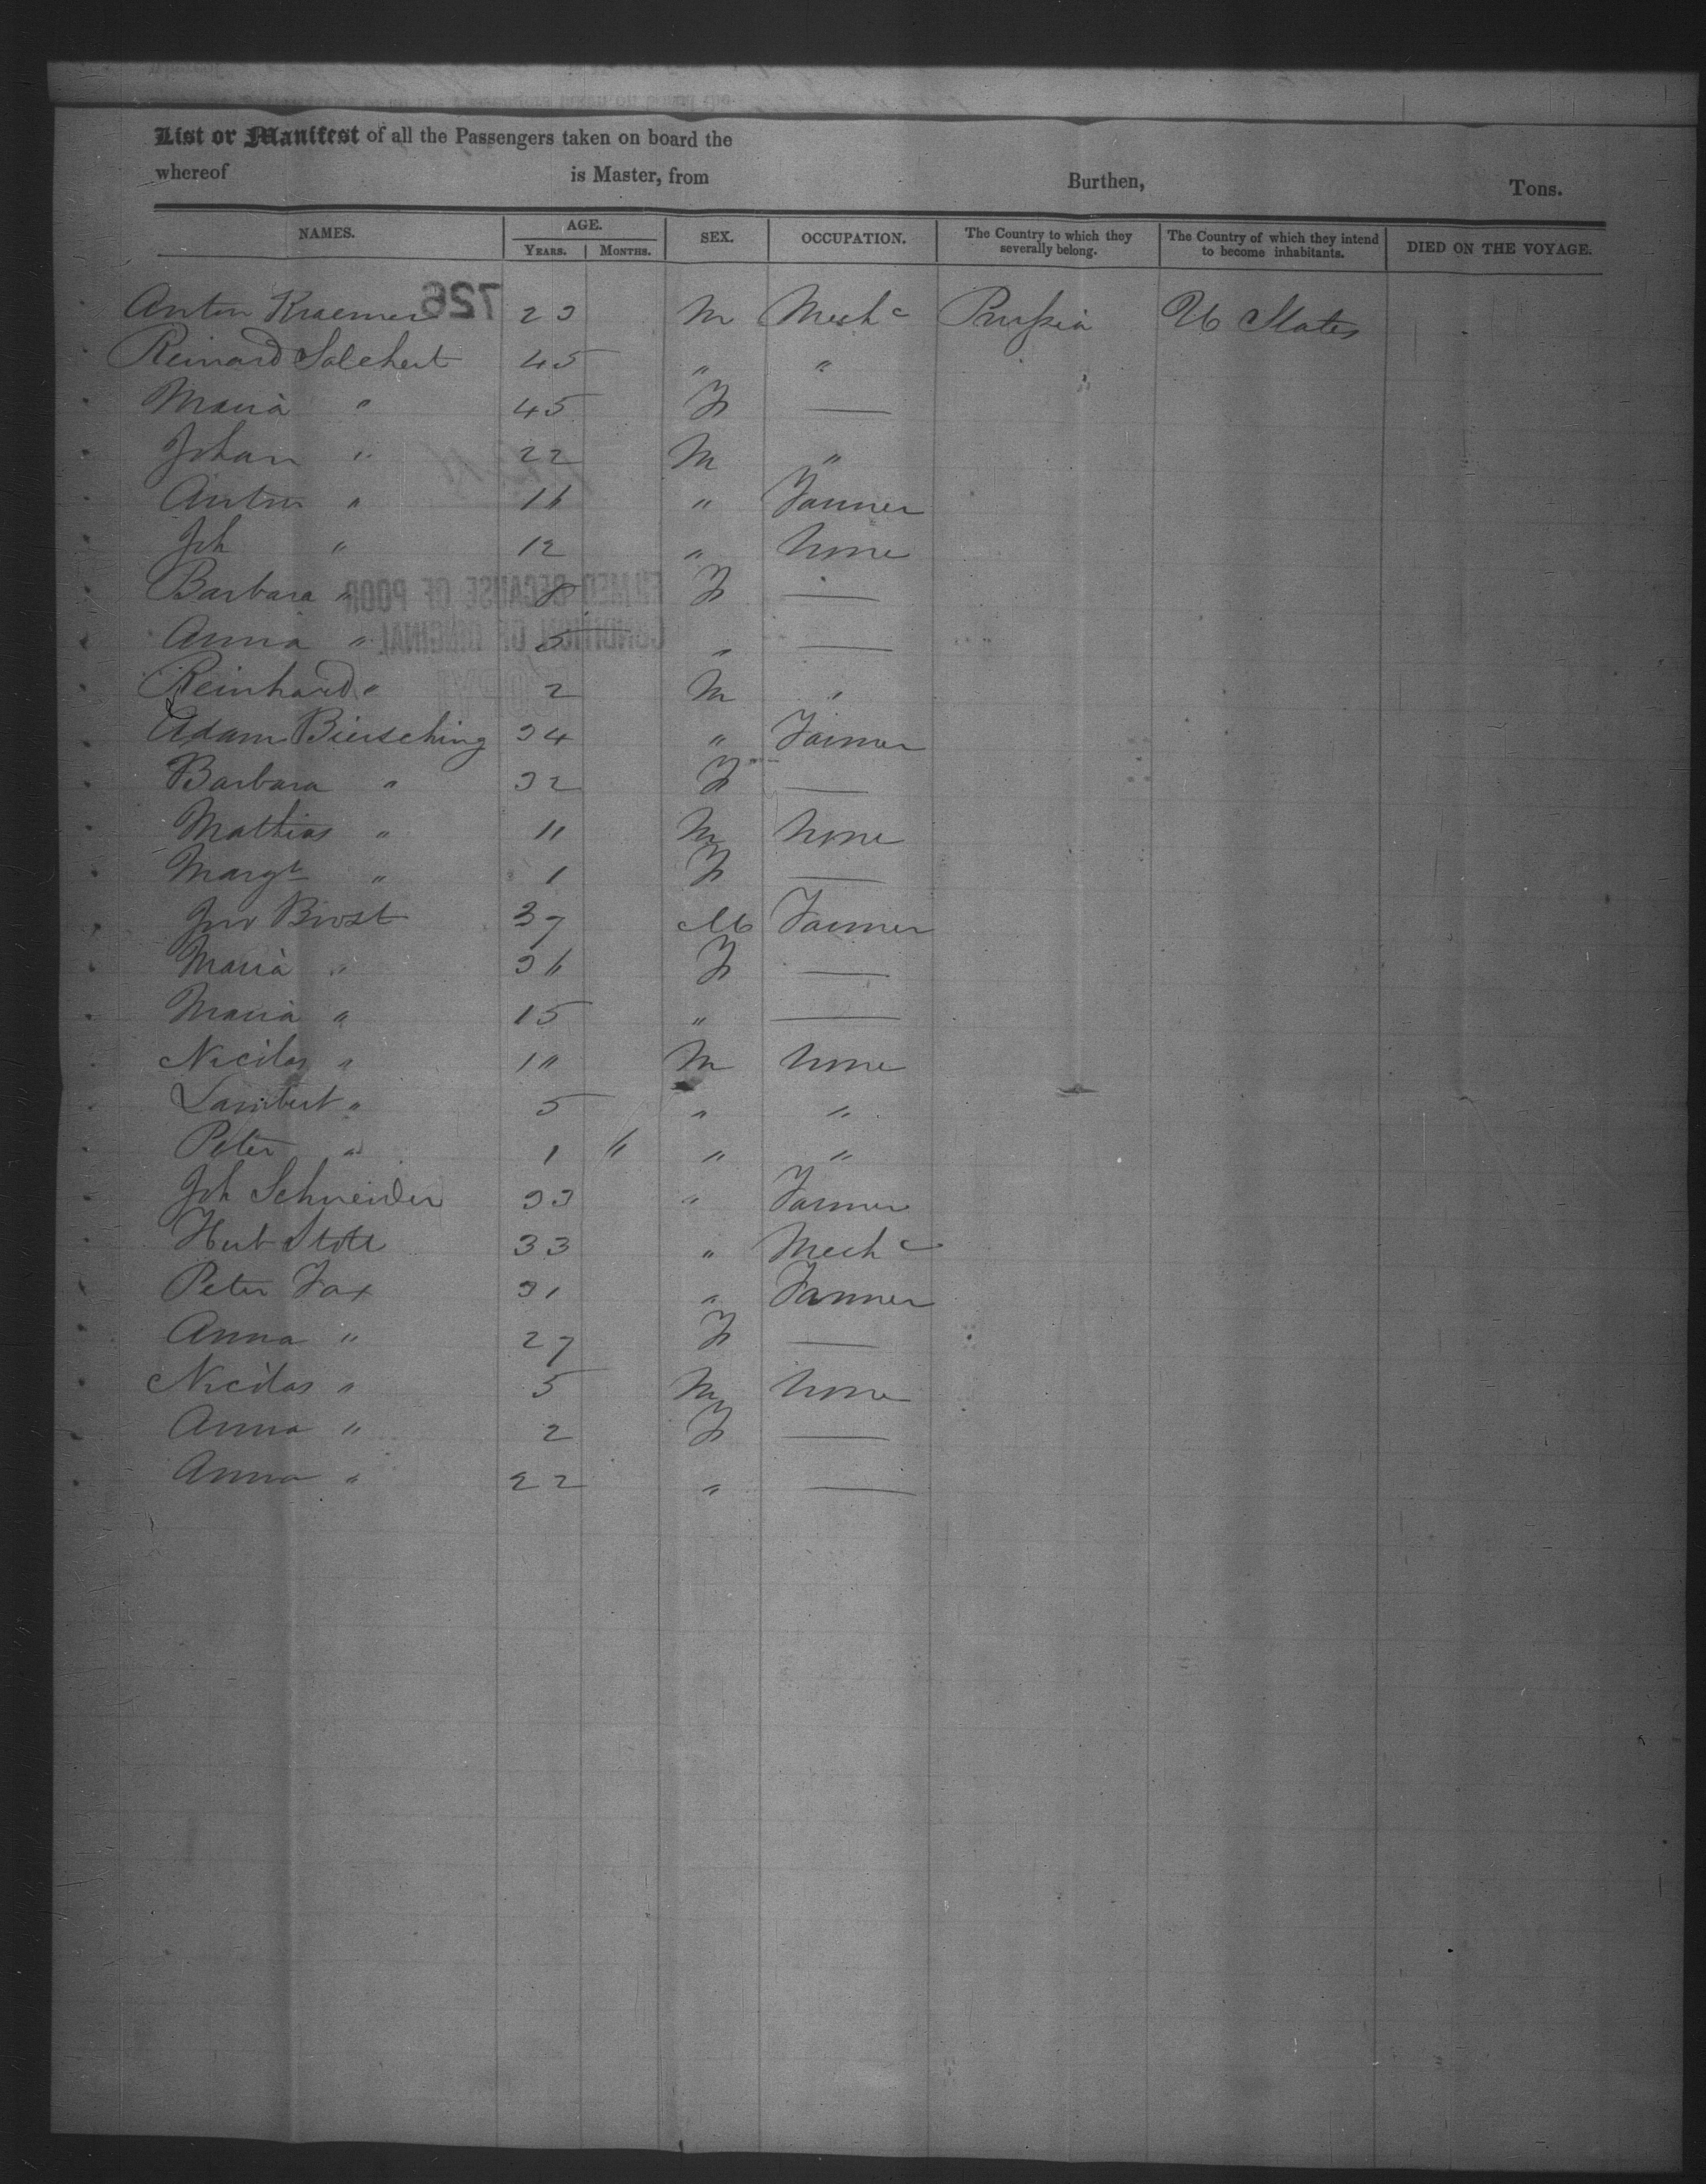 List or Manifest of all the Passengers taken on board the
whereof is Master, from Burthen, Tons.
NAMES. AGE. YEARS. MONTHS. SEX. OCCUPATION. The Country to which they severally belong. The Country of which they intend to become inhabitants. DIED ON THE VOYAGE.
726
Anton Kraemer 23 M Mechc Prussia U States
Reinard Salchert 45 " "
Maria " 45 F —
Johan " 22 M "
Anton " 16 " Farmer
Joh " 12 " None
Barbara " 8 F —
Anna " 5 " —
Reinhard " 2 M "
Adam Biersching 34 " Farmer
Barbara " 32 F —
Mathias " 11 M None
Margt " 1 F —
Jno Brost 37 M Farmer
Maria " 36 F —
Maria " 15 " —
Nicolas " M None
Lambert " 5 " "
Peter " 1 " "
Joh Schneider 33 " Farmer
Hub 33 " Mechc
Peter Fax 31 " Farmer
Anna " 27 F —
Nicolas " 5 M None
Anna " 2 F —
Anna " 22 " —
FILMED BECAUSE OF POOR
CONDITION OF ORIGINAL